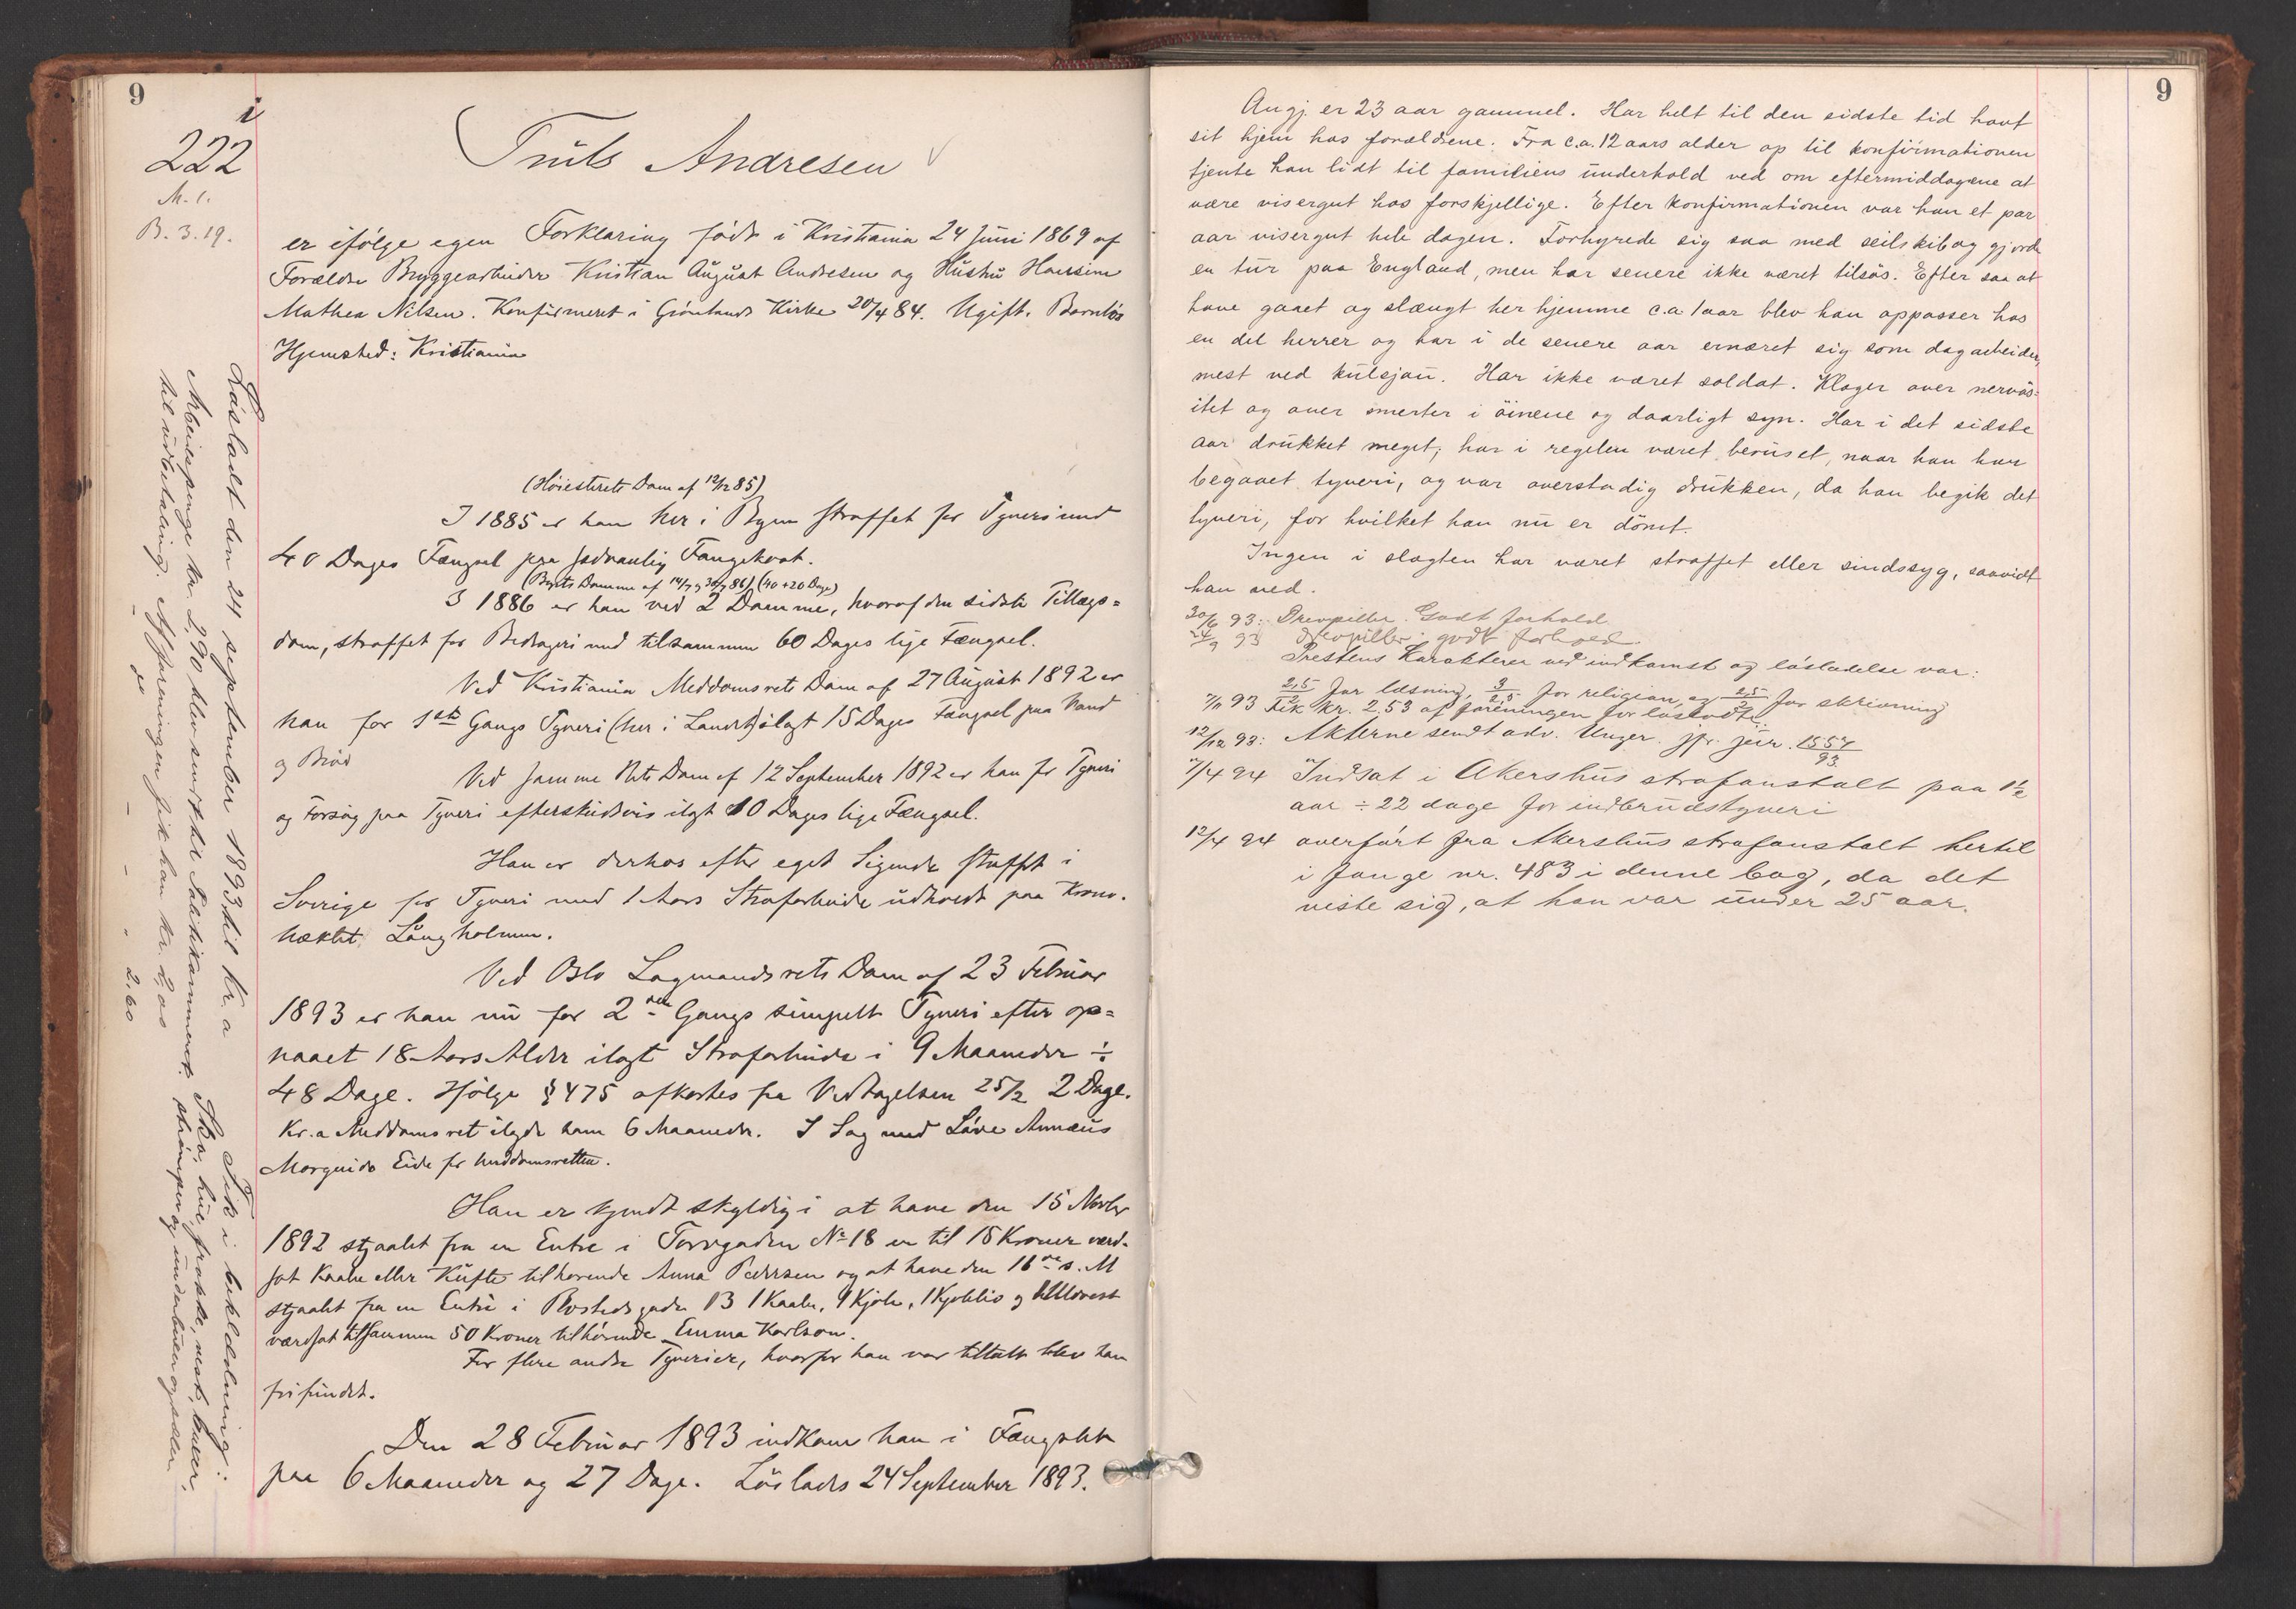 9
i
222
M. l.
B. 3. 19.
Truls Andresen
er ifølge egen Forklaring född i Kristiania 24 Juni 1869 af
Forældre Bryggearbeider Kristian August Andresen og Hustru Hansine
Mathea Nilsen. Konfirmeret i Grønlands Kirke 20/4 84. Ugift. Barnløs
Hjemsted: Kristiania
(Høiesterets Dom af 12/12 85)
I 1885 er han her i Byen straffet for Tyveri med
40 Dages Fængsel paa sædvanlig Fangekost.
(Byrets Domme af 14/7 og 30/7 86) (40 + 20 Dage)
I 1886 er han ved 2 Domme, hvoraf den sidste Tillægs=
dom, straffet for Bedrageri med tilsammen 60 Dages lige Fængsel.
Ved Kristiania Meddomsrets Dom af 27 August 1892 er
han for 1ste Gangs Tyveri (her i Landet) ilagt 15 Dages Fængsel paa Vand
og Brød
Ved samme Rets Dom af 12 September 1892 er han for Tyveri
og Forsøg paa Tyveri efterskudsvis ilagt 10 Dages lige Fængsel.
Han er derhos efter eget Sigende straffet i
Sverige for Tyveri med 1 Aars Strafarbeide udholdt paa Krono-
häktet Långholmen.
Ved Oslo Lagmandsrets Dom af 23 Februar
1893 er han nu for 2den Gangs simpelt Tyveri efter op=
naaet 18 Aars Alder ilagt Strafarbeide i 9 Maaneder ÷
48 Dage. Ifølge § 475 afkortes fra Vedtagelsen 25/2 2 Dage.
Kr.a Meddomsret ilagde ham 6 Maaneder. I Sag med Låve Annæus
Morguido Eide for meddomsretten.
Han er kjendt skyldig i at have den 15 Novbr
1892 stjaalet fra en Entre i Torvgaden No 18 en til 18 Kroner værd-
sat Kaabe eller Kufte tilhørende Anna Pedersen og at have den 16de s. M
stjaalet fra en Entré i Rostedsgade 13 1 Kaabe, 1 Kjole, 1 Kjoleliv og 1
værdsat tilsammen 50 Kroner tilhørende Emma Karlson.
For flere andre Tyverier, hvorfor han var tiltalt blev han
frifundet.
Den 28 Februar 1893 indkom han i Fængslet
paa 6 Maaneder og 27 Dage. Löslades 24 September 1893.
Løsladt den 24 september 1893 til kr.a
Arbeidspenge kr 2,90 blev sendt kr. Politikammeret
til udbetaling. Af foreningen fik han kr. 2,00
2.60
Fik i beklædning:
Sko, hue, frakke, vest, buxer,
strømper og underbuxer og
9
Angj. er 23 aar gammel. Har helt til den sidste tid havt
sit hjem hos forældrene. Fra c.a. 12 aars alder op til konfirmationen
tjente han lidt til familiens underhold ved om eftermiddagene at
være visergut hos forskjellige. Efter konfirmationen var han et par
aar visergut hele dagen. Forhyrede sig saa med seilskib og gjorde
en tur paa England, men har senere ikke været tilsös. Efter saa at
have gaaet og slængt her hjemme c.a 1 aar blev han oppasser hos
en del herrer og har i de senere aar ernæret sig som dagarbeider,
mest ved kulsjau. Har ikke været soldat. Klager over nervös=
itet og over smerter i öinene og daarligt syn. Har i det sidste
aar drukket meget; har i regelen været beruset, naar han har
begaaet tyveri, og var overstadig drukken, da han begik det
tyveri, for hvilket han nu er dömt.
Ingen i slægten har været straffet eller sindssyg, saavidt
han ved.
30/6 93: Drevpiller. Godt forhold.
24/9 93 drevpiller: godt forhold.
Prestens Karakterer ved indkomst og løsladelse var:
2,5/2 for læsning, 3/2,5 for religion og 2,5/2 for skrivning
7/11 93 Fik kr. 2.53 af foreningen for løsladte.
12/12 93: Akterne sendt adv. Unger. jfr. jour. 1554/93.
7/4 94 Indsat i Akershus strafanstalt paa 1½
aar ÷ 22 dage for indbrudstyveri
12/4 94 overført fra Akershus strafanstalt hertil
i fange nr. 483 i denne bog, da det
viste sig, at han var under 25 aar.